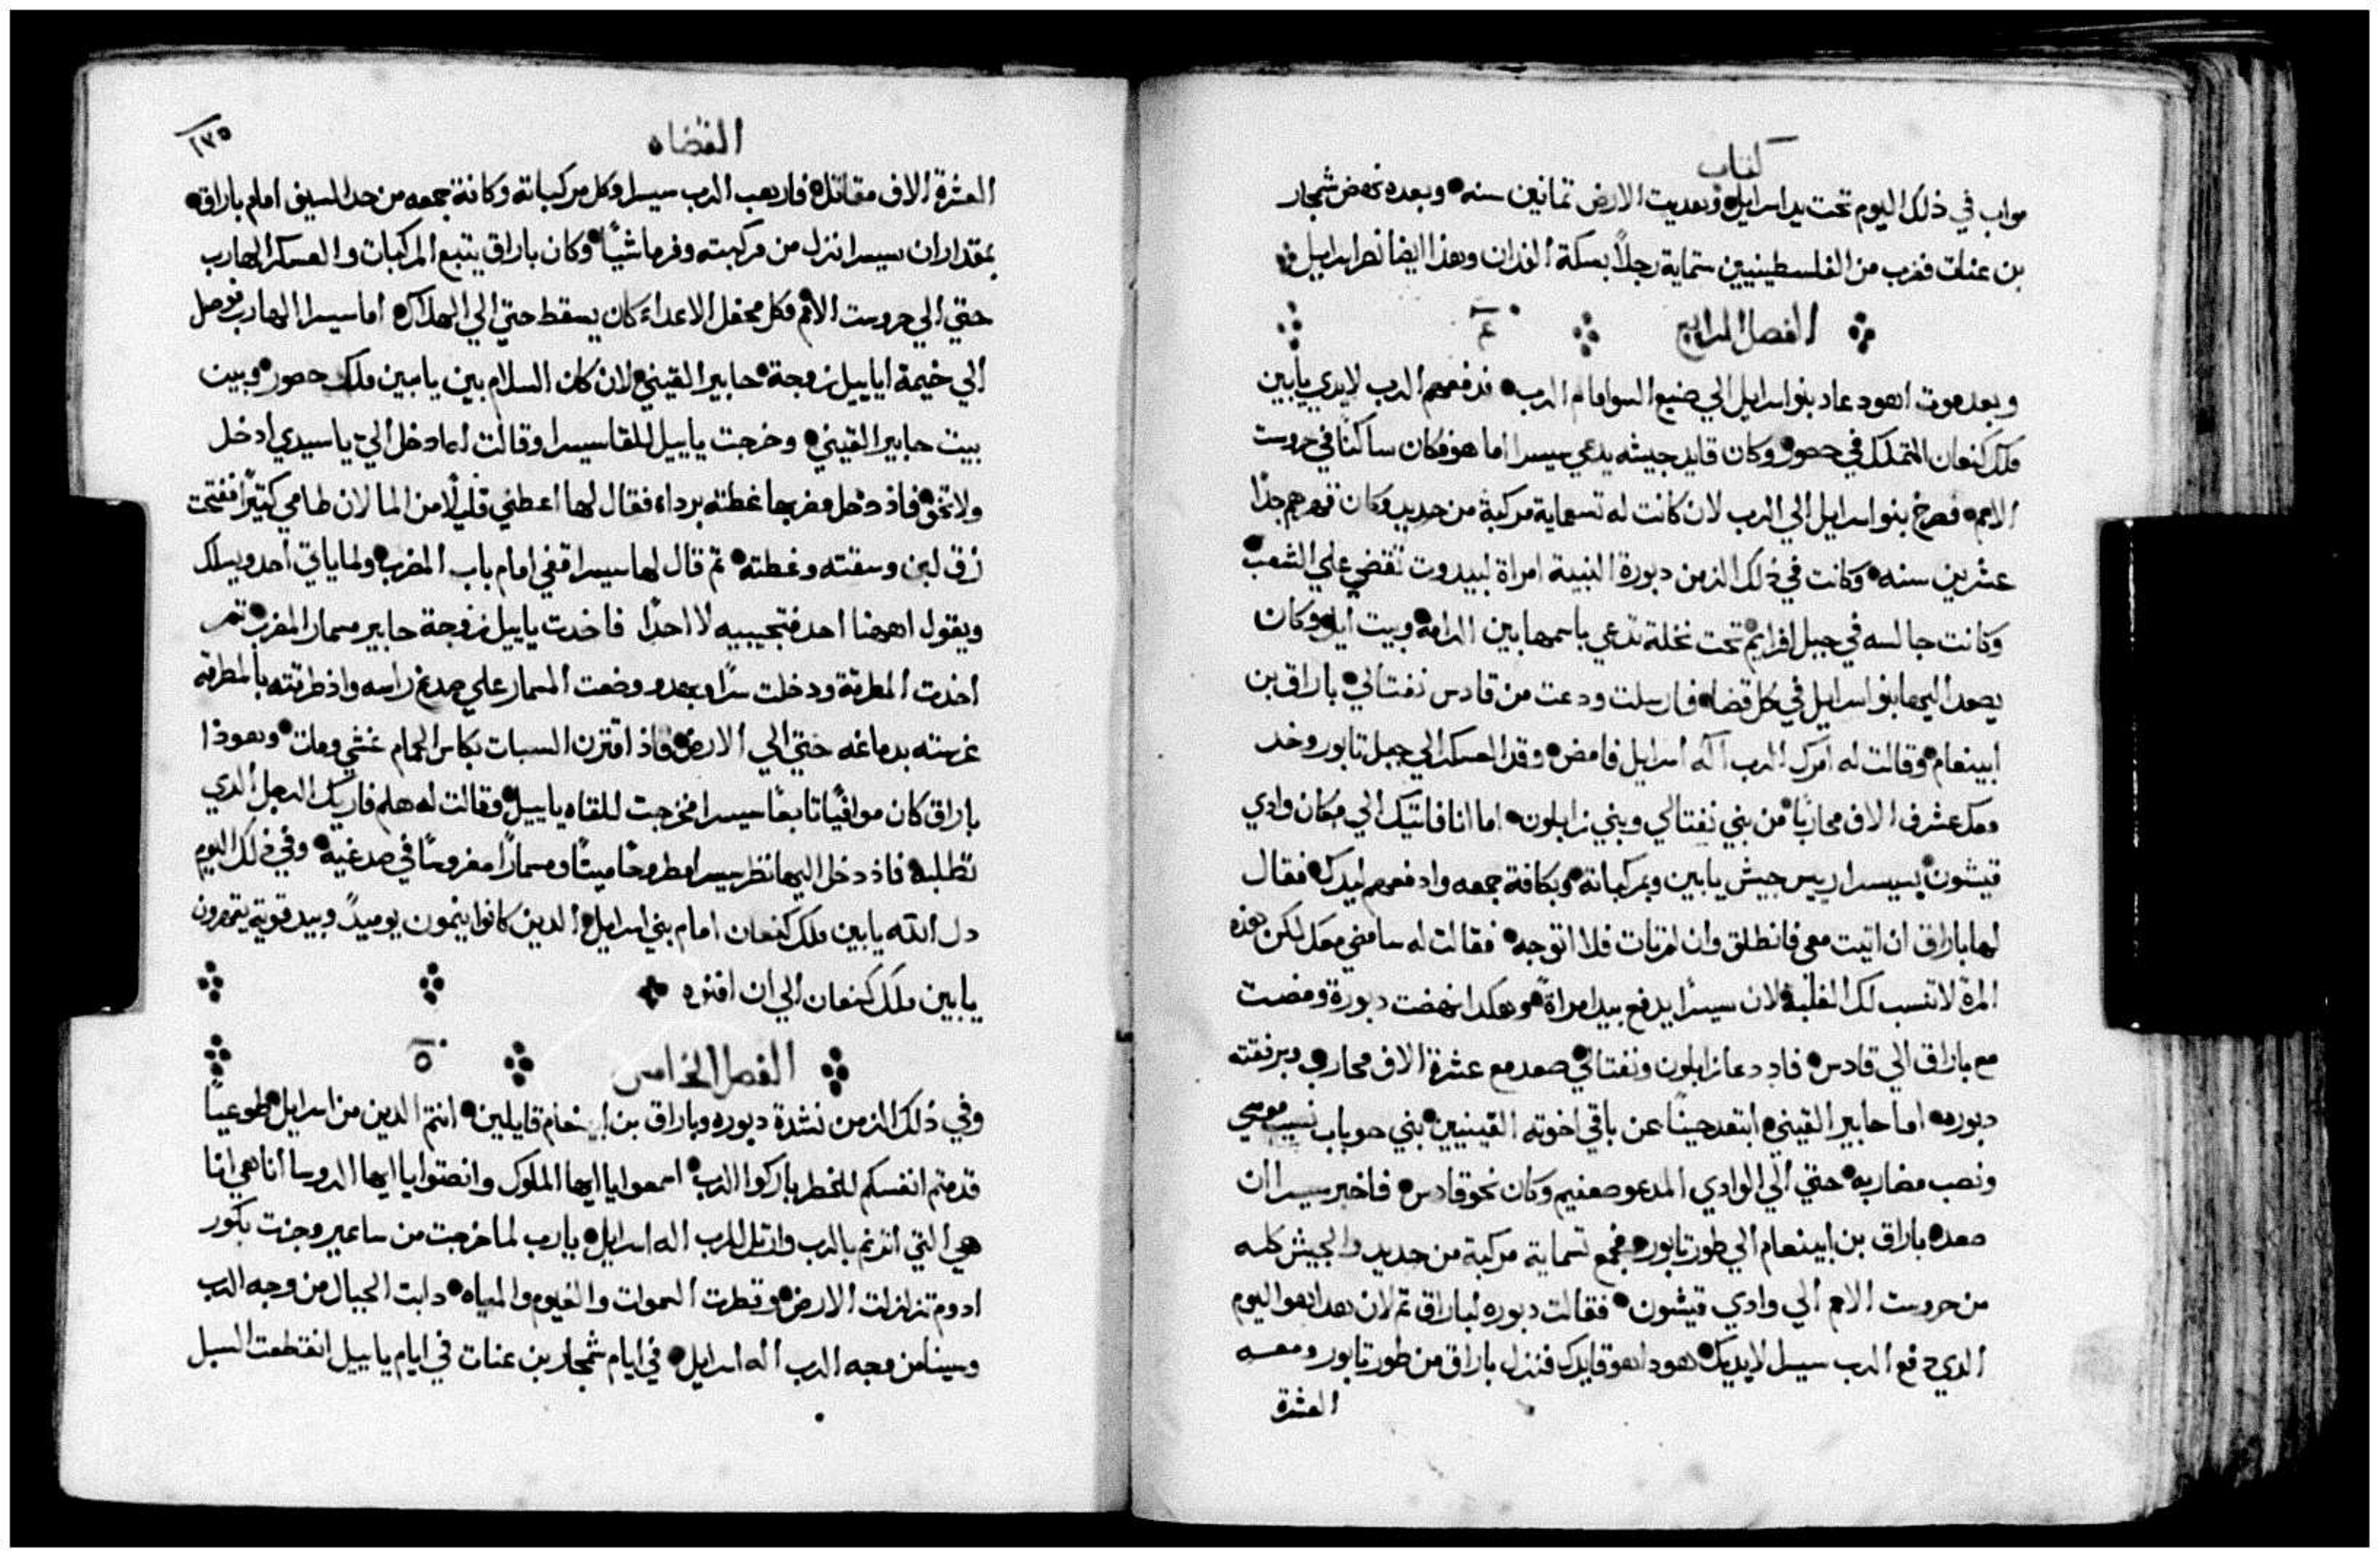 كتاب
مواب في ذلك اليوم تحت يد اسراييل وهديت الارض تمانين سنه وبعده نهض شمجار
بن عنات فضرب من الفلسطينيين ستماية رجلاً بسكة الفدان وهذا ايضا نصر اسراييل
الفصل الرابع ٤
وبعد موت اهود عاد بنو اسراييل الي صنيع السو امام الرب فدفعهم الرب لايدي يابين
ملك كنعان المتملك في حصور وكان قايد جيشه يدعي سيسرا اما هو فكان ساكنًا في حروست
الامم فصرخ بنو اسراييل الي الرب لان كانت له تسعماية مركبة من حديد وكان قهرهم جدًا
عشرين سنه وكانت في ذلك الزمن دبورة النبية امراة لبيدوت تقضي علي الشعب
وكانت جالسه في جبل افرايم تحت نخلة تدعي باسمها بين الرامة وبيت ايل وكان
يصعد اليها بنو اسراييل في كل قضاء فارسلت ودعت من قادس نفتالي باراق بن
ابينعام وقالت له امرك الرب اله اسراييل فامض وقد العسكر الي جبل تابور وخد
معك عشرة الاف محاربًا من بني نفتالي وبني زابلون اما انا فاتيك الي مكان وادي
قيشون بسيسرا رييس جيش يابين وبمركباته وبكافة جمعه وادفعهم ليدك فقال
لها باراق ان اتيت معي فانطلق وان لم تات فلا اتوجه فقالت له سامضي معك لكن بهذه
المرة لا تنسب لك الغلبة لان سيسرا يدفع بيد امراة وهكدا نهضت دبورة ومضت
مع باراق الي قادس فاد دعا زابلون ونفتالي صعد مع عشرة الاف محارب وبرفقته
دبوره اما حابير القيني ابتعد حينًا عن باقي اخوته القينيين بني حوباب نسيب موسي
ونصب مضاربه حتي الي الوادي المدعو صعنيم وكان نحو قادس فاخبر سيسرا ان
صعد باراق بن ابينعام الي طور تابور فجمع تسماية مركبة من حديد والجيش كله
من حروست الامم الي وادي قيشون فقالت دبوره لباراق قم لان هدا هو اليوم
الدي دفع الرب سيسرا لايديك هودا هو قايدك فنزل باراق من طور تابور ومعه
العشرة
القضاه
١٣٥
العشرة الاف مقاتل فارهب الرب سيسرا وكل مركباته وكافة جمعه من حد السيف امام باراق
بمقدار ان سيسرا نزل من مركبته وفر ماشيًا وكان باراق يتبع المركبات والعسكر الهارب
حتي الي حروست الامم وكل محفل الاعداء كان يسقط حتي الي الهلاك اما سيسرا الهارب فوصل
الي خيمة اياييل زوجة حابير القيني لان كان السلام بين يابين ملك حصور وبيت
بيت حابير القيني وخرجت ياييل للقا سيسرا وقالت له ادخل الي يا سيدي ادخل
ولا تخف فاذ دخل مضربها غطته برداء فقال لها اعطني قليلًا من الما لان ظامي كتيرًا ففتحت
زق لبن وسقته وغطته تم قال لها سيسرا قفي امام باب المضرب ولما ياتي احد ويسلك
ويقول اههنا احد فتجيبيه لا احدًا فاخدت ياييل زوجة حابير مسمار المضرب تم
اخدت المطرقة ودخلت سرًا وبهدو وضعت المسمار علي صدغ راسه واذ طرقته بالمطرقه
غرسته بدماغه حتي الي الارض فاذ اقترن السبات بكاس الحمام غشي ومات وهوذا
باراق كان موافيًا تابعًا سيسرا فخرجت للقاه ياييل وقالت له هلم فاريك الرجل الدي
تطلبه فاذ دخل اليها نظر سيسرا مطروحًا ميتًا ومسمارًا مغروسًا في صدغيه وفي ذلك اليوم
دل الله يابين ملك كنعان امام بني اسراييل الدين كانوا ينمون يوميدً وبيد قوية يقهرون
يابين ملك كنعان الي ان افنوه
الفصل الخامس ٥
وفي ذلك الزمن نشدة دبوره وباراق بن ابينعام قايلين انتم الدين من اسراييل طوعيًا
قدمتم انفسكم للخطر باركوا الرب اسمعوا يا ايها الملوك وانصتوا يا ايها الروسا انا هي انا
هي التي اترنم بالرب وارتل للرب اله اسراييل يارب لما خرجت من ساعير وجزت بكور
ادوم تزلزلت الارض وقطرت السموات والغيوم والمياه دابت الجبال من وجه الرب
وسينا من وجه الرب اله اسراييل في ايام شمجار بن عنات في ايام ياييل انقطعت السبل